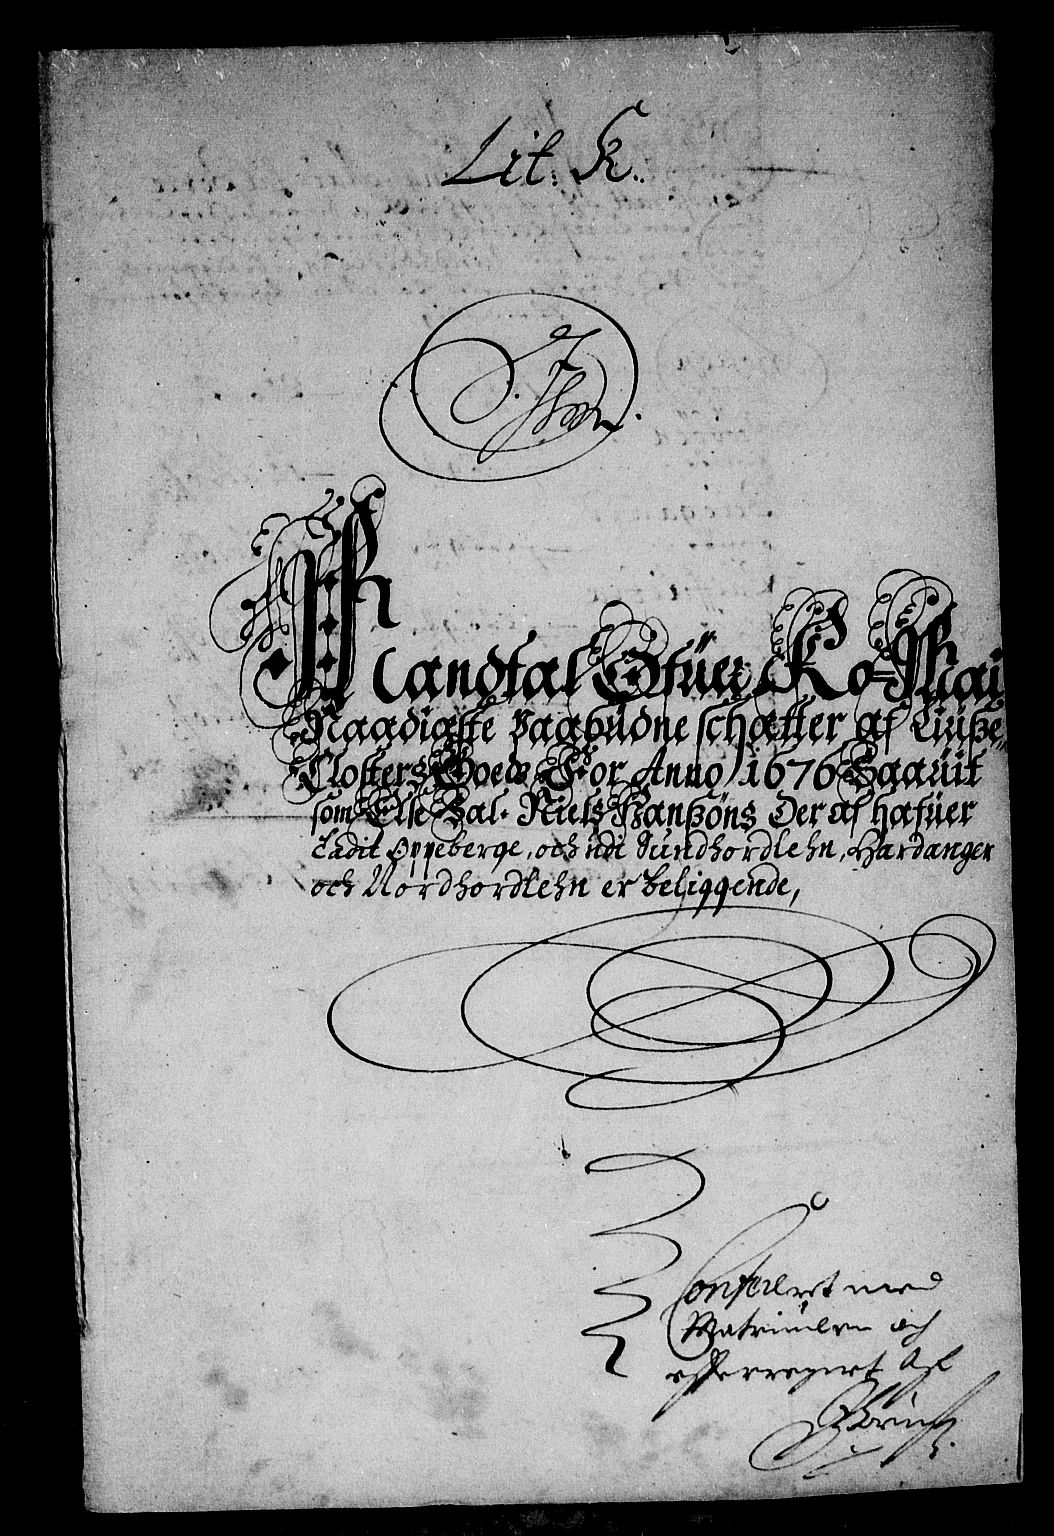 Lit. K.
Mandtal Ofuer Ko: Mai
Naadigste Paabudne schatter af Liüße
Closters Goeds For Anno 1676 Saauit
som Else Sal. Niels Hanßöns Der af hafuer
Ladit Oppeberge, och udi Sundhordlehn, Hardanger
och Nordhordlehn er beliggende,
Confereret med
Matriculen och
efterregnet